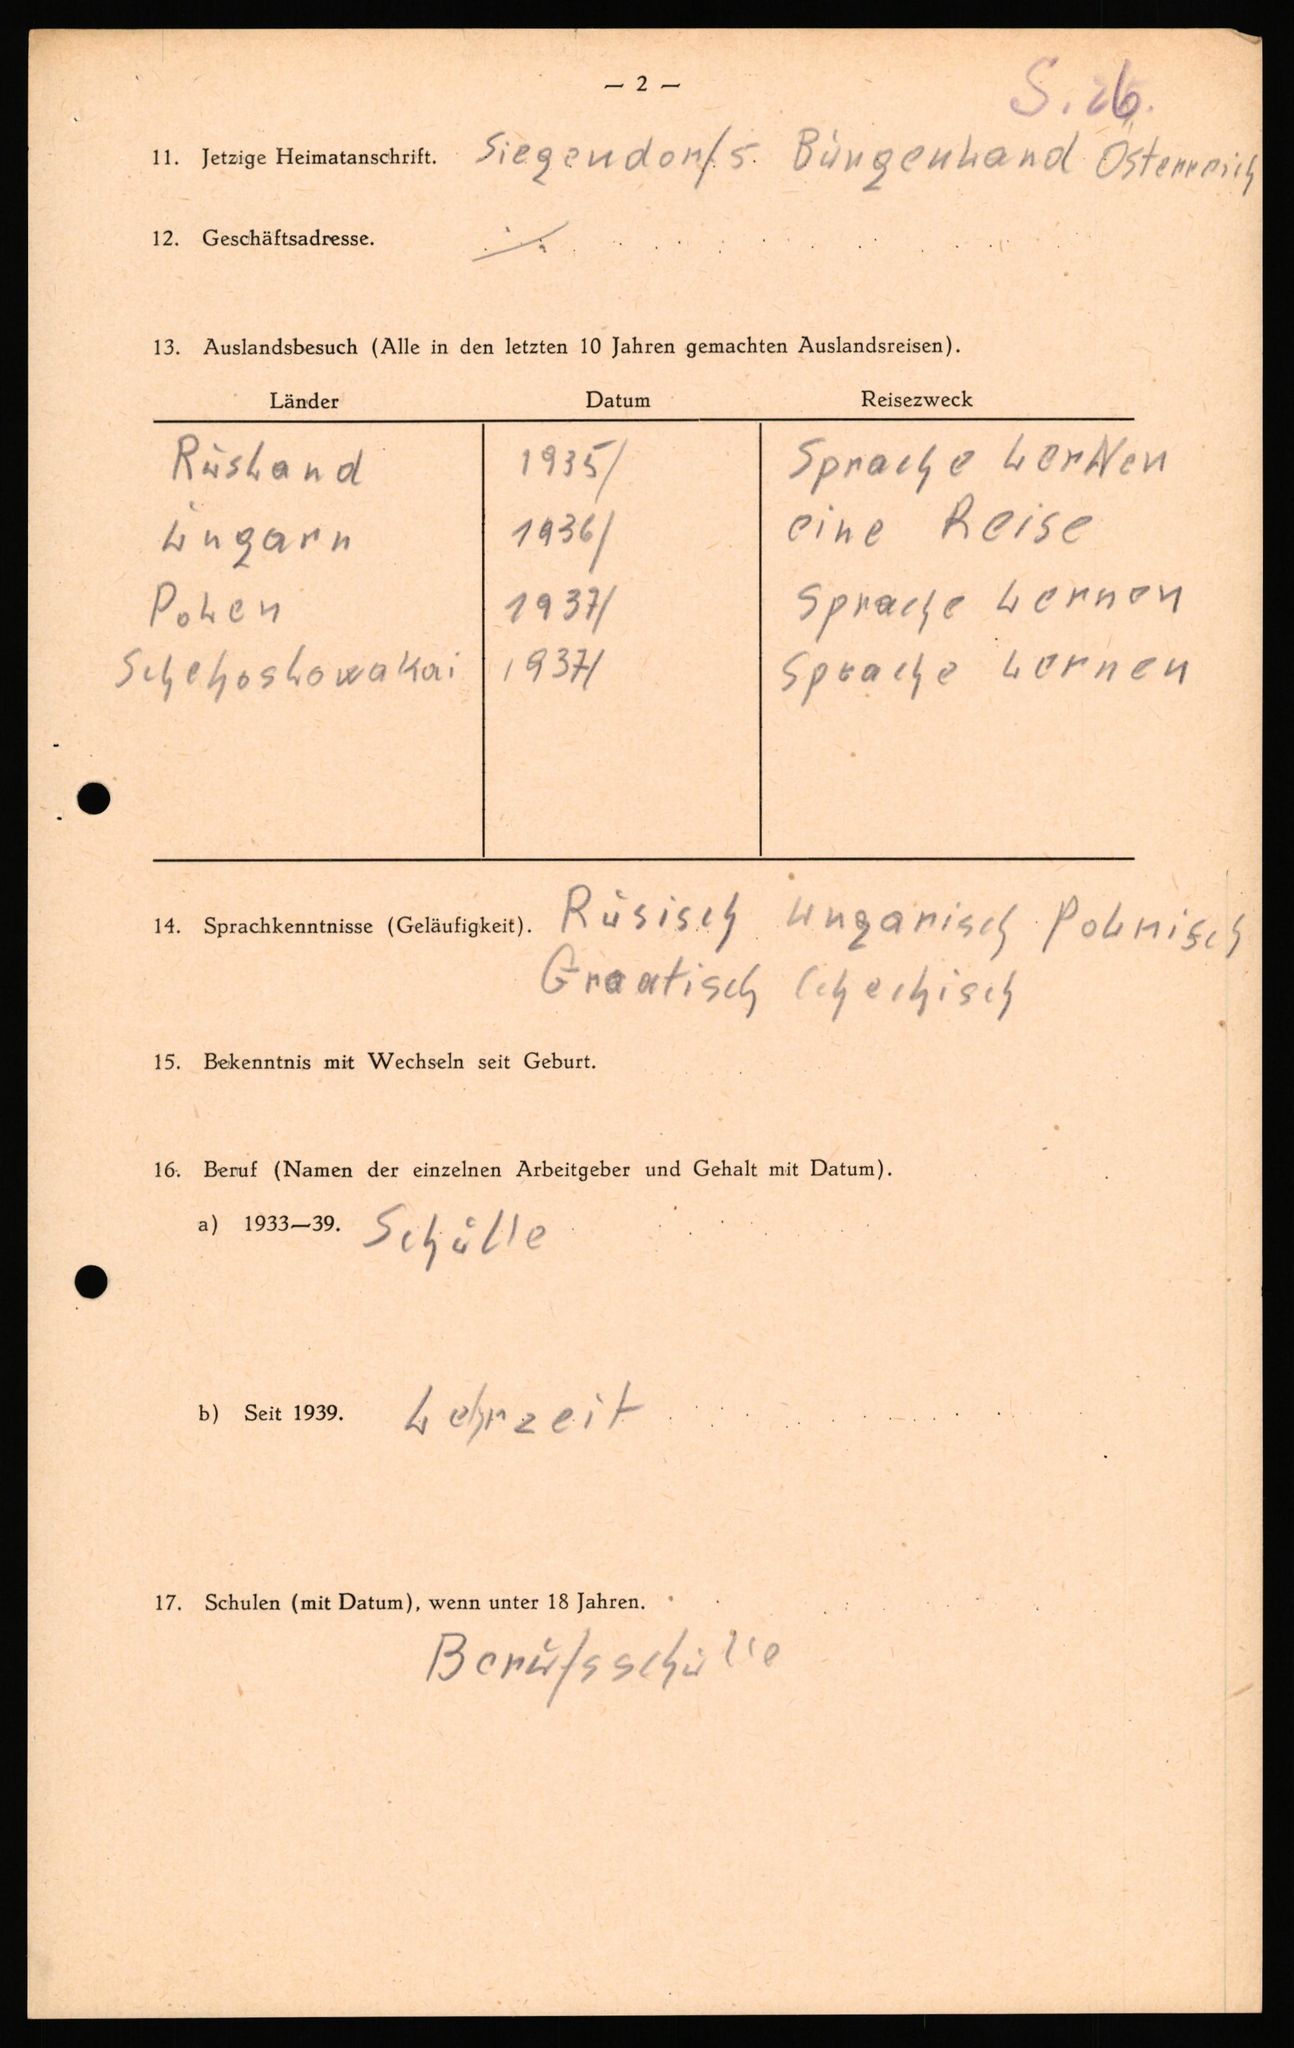 — 2 —
S. 26.
11. Jetzige Heimatanschrift. Siegendorf 5. Burgenland Österreich
12. Geschäftsadresse. ./.
13. Auslandsbesuch (Alle in den letzten 10 Jahren gemachten Auslandsreisen).
Länder Datum Reisezweck
Rusland 1935/ Sprache LerNen
Ungarn 1936/ eine Reise
Polen 1937/ Sprache Lernen
Schehoslowakai 1937/ Sprache Lernen
14. Sprachkenntnisse (Geläufigkeit). Rusisch Ungarisch Polnisch
Graatisch Chechisch
15. Bekenntnis mit Wechseln seit Geburt.
16. Beruf (Namen der einzelnen Arbeitgeber und Gehalt mit Datum).
a) 1933—39. Schulle
b) Seit 1939. Lehrzeit
17. Schulen (mit Datum), wenn unter 18 Jahren.
Berufsschulle